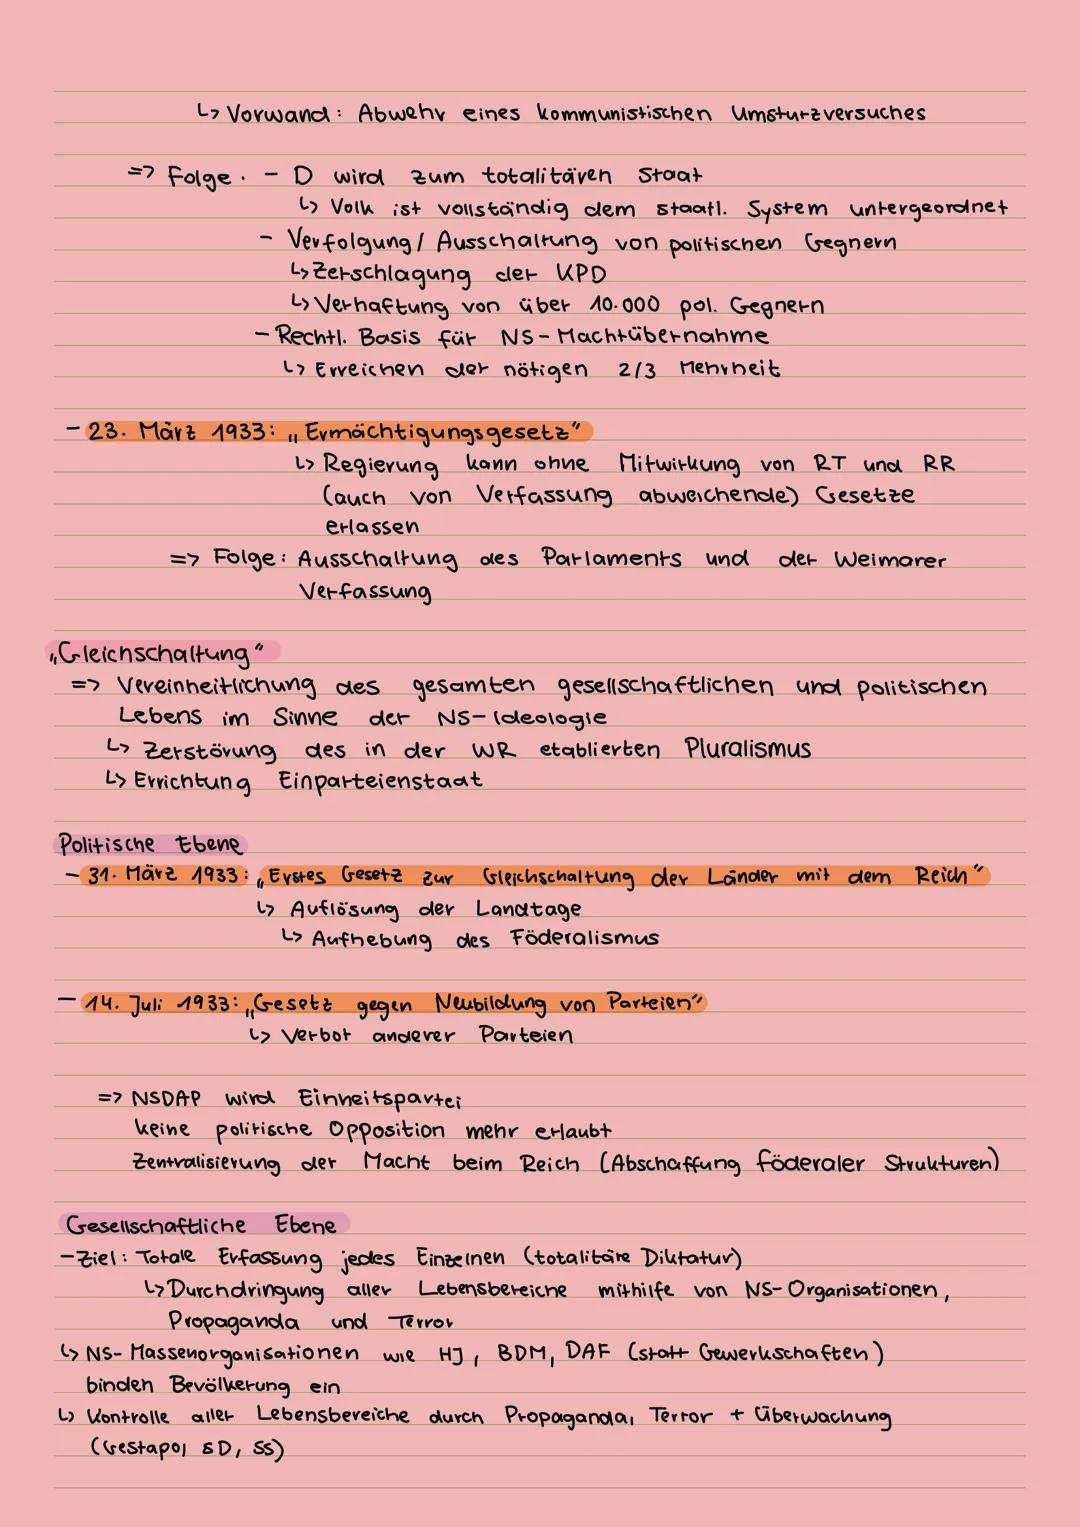 ↳ Vorwand: Abwehr eines kommunistischen Umsturzversuches
=> Folge: - D wird zum totalitären Staat
↳ Volk ist vollständig dem staatl. System untergeordnet
- Verfolgung/ Ausschaltung von politischen Gegnern
↳ Zerschlagung der KPD
↳ Verhaftung von über 10.000 pol. Gegnern
- Rechtl. Basis für NS-Machtübernahme
↳ Erreichen der nötigen 2/3 Mehrheit
- 23. März 1933: „Ermächtigungsgesetz"
↳ Regierung kann ohne Mitwirkung von RT und RR
(auch von Verfassung abweichende) Gesetze
erlassen
=> Folge: Ausschaltung des Parlaments und der Weimarer
Verfassung
„Gleichschaltung"
=> Vereinheitlichung des gesamten gesellschaftlichen und politischen
Lebens im Sinne der NS-Ideologie
↳ Zerstörung des in der WR etablierten Pluralismus
↳ Errichtung Einparteienstaat
Politische Ebene
- 31. März 1933: „Erstes Gesetz zur Gleichschaltung der Länder mit dem Reich"
↳ Auflösung der Landtage
↳ Aufhebung des Föderalismus
- 14. Juli 1933: „Gesetz gegen Neubildung von Parteien"
↳ Verbot anderer Parteien
=> NSDAP wird Einheitspartei
keine politische Opposition mehr erlaubt
Zentralisierung der Macht beim Reich (Abschaffung föderaler Strukturen)
Gesellschaftliche Ebene
- Ziel: Totale Erfassung jedes Einzelnen (totalitäre Diktatur)
↳ Durchdringung aller Lebensbereiche mithilfe von NS-Organisationen,
Propaganda und Terror
↳ NS-Massenorganisationen wie HJ, BDM, DAF (statt Gewerkschaften)
binden Bevölkerung ein
↳ Kontrolle aller Lebensbereiche durch Propaganda, Terror + Überwachung
(Gestapo, SD, SS)